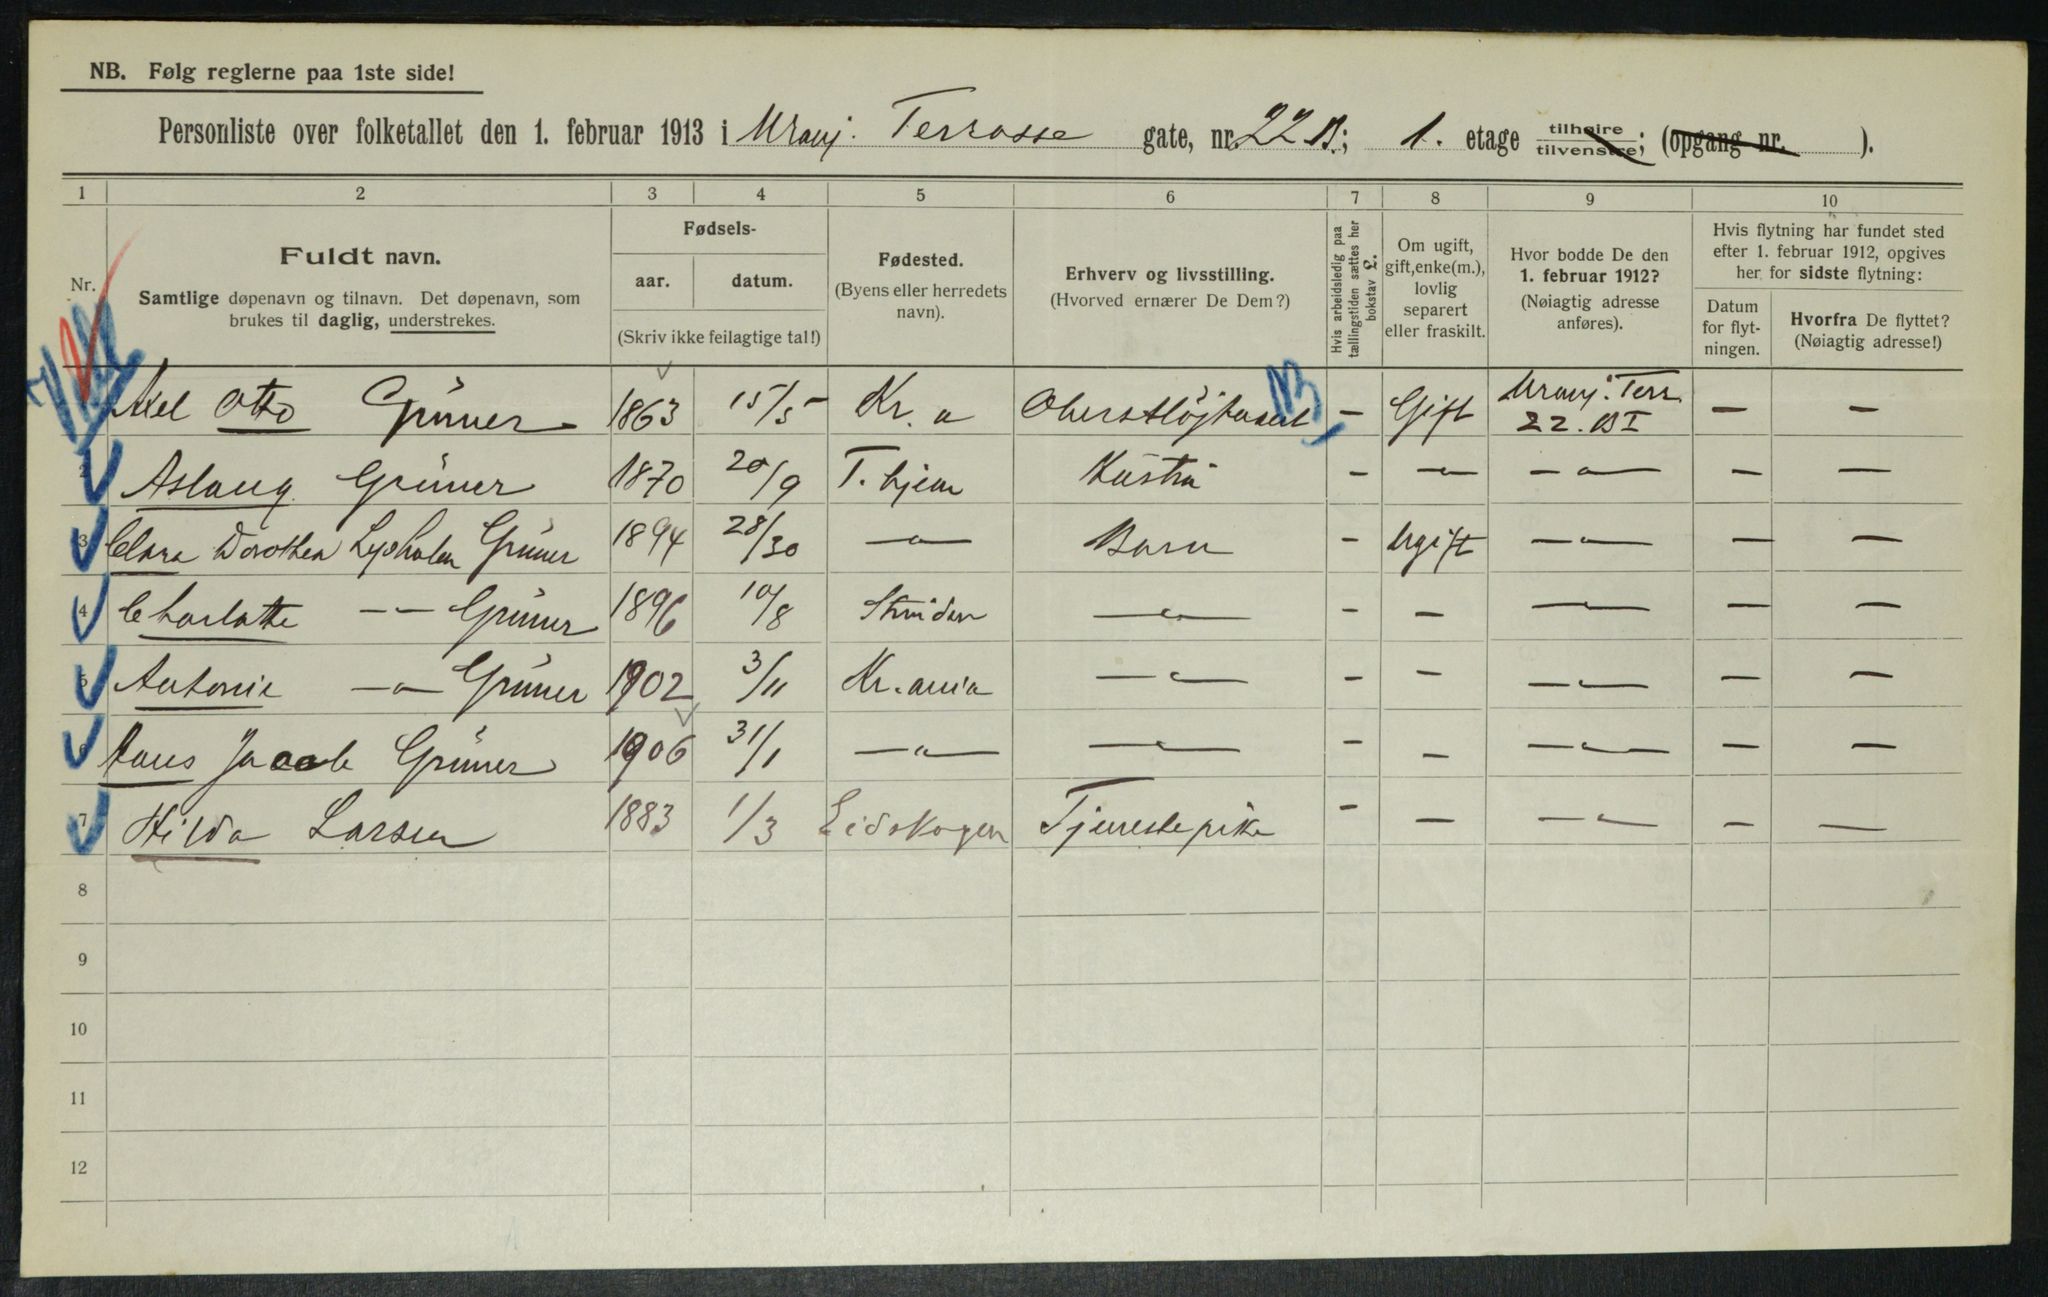 NB. Følg reglerne paa 1ste side!
Personliste over folketallet den 1. februar 1913 i Uranj. Terrasse gate, nr. 22 B; 1. etage tilhøire tilvenstre; (opgang nr. ).
1 2 3 4 5 6 7 8 9 10
Nr.
Fuldt navn.
Samtlige døpenavn og tilnavn. Det døpenavn, som
brukes til daglig, understrekes.
Fødsels-
aar. datum.
(Skriv ikke feilagtige tal!)
Fødested.
(Byens eller herredets
navn).
Erhverv og livsstilling.
(Hvorved ernærer De Dem?)
Hvis arbeidsledig paa
tællingstiden sættes her
bokstav L.
Om ugift,
gift, enke(m.),
lovlig
separert
eller fraskilt.
Hvor bodde De den
1. februar 1912?
(Nøiagtig adresse
anføres).
Hvis flytning har fundet sted
efter 1. februar 1912, opgives
her for sidste flytning:
Datum
for flyt-
ningen.
Hvorfra De flyttet?
(Nøiagtig adresse!)
Axel Otto Grüner 1863 15/5 Kr. a - Gift Uranj. Terr. 22. B I - -
2 Aslaug Grüner 1870 20/9 T. hjem Hustru - -"- -"- - -
3 Clara Dorothea Lysholm Grüner 1894 28/30 -"- Barn - Ugift -"- - -
4 Charlotte -"- Grüner 1896 10/8 -"- - - -"- - -
5 Antonie -"- Grüner 1902 3/11 Kr.ania -"- - - -"- - -
6 Hans Jacob Grüner 1906 31/1 -"- -"- - - -"- - -
7 Hilda Larsen 1883 1/3 Eidskogen Tjenestepike - - -"- - -
8
9
10
11
12